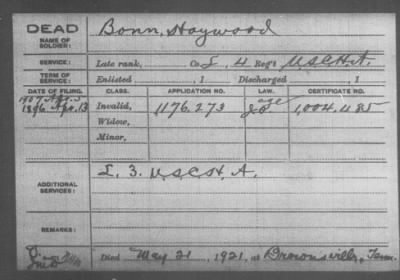 DEAD
NAME OF SOLDIER:
Bonn, Haywood
SERVICE:
Late rank, Co L, 4 Reg't U.S.C.H.A.
TERM OF SERVICE:
Enlisted , 1 Discharged , 1
DATE OF FILING. CLASS. APPLICATION NO. LAW. CERTIFICATE NO.
1907 Apr. 5 age
1896 Apr. 13 Invalid, 1176.273 1,004,485
Widow,
Minor,
ADDITIONAL SERVICES:
L. 3. U.S.C.H.A.
REMARKS:
Died May 21, 1921, at Brownsville, Tenn.